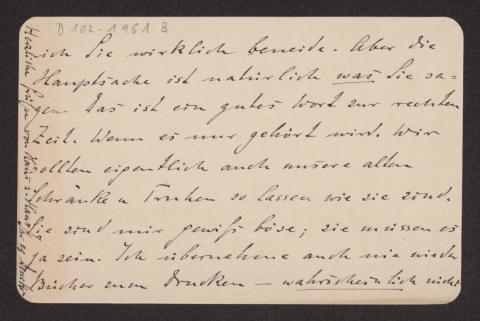 D 102-1961 B
ich Sie wirklich beneide. Aber die
Hauptsache ist natürlich was Sie sa-
gen. Das ist ein gutes Wort zur rechten
Zeit. Wenn es nur gehört wird. Wir
sollten eigentlich auch unsere alten
Schränke u Truhen so lassen wie sie sind.
Sie sind mir gewiß böse; sie müssen es
ja sein. Ich übernehme auch nie wieder
Bücher zum Drucken – wahrscheinlich nicht
Herzliche Grüße von Haus z. Haus Ihr